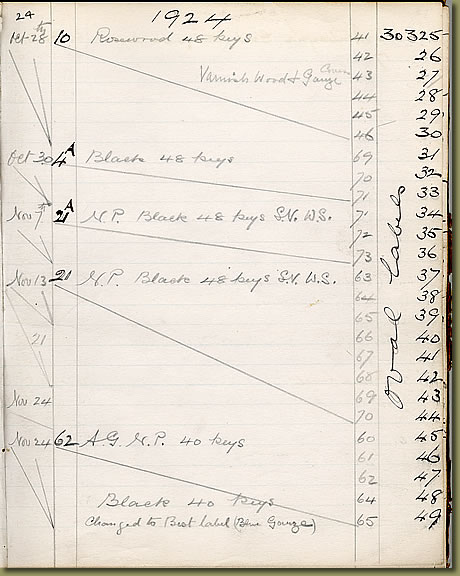 24 1924
Oct 28th 10 Rosewood 48 keys 41 30325
42 26
Varnish Wood & Gauze 43 27
44 28
45 29
46 30
Oct 30 4A Black 48 keys 69 31
70 32
71 33
Nov 7th 21A N.P. Black 48 keys S.V. W.S. 71 34
72 35
73 36
Nov 13 21 N.P. Black 48 keys S.V. W.S. 63 37
64 38
65 39
21 66 40
67 41
68 42
Nov 24 69 43
70 44
Nov 24 62 A.G. N.P. 40 keys 60 45
61 46
62 47
Black 40 keys 64 48
Changed to Best label (Blue Gauze) 65 49
Oval labels